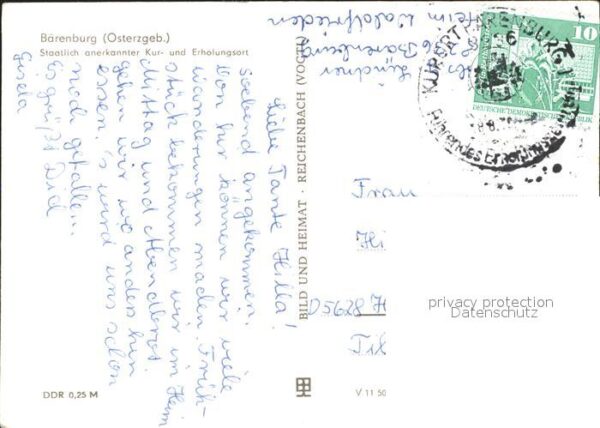 Bärenburg (Osterzgeb.)
Staatlich anerkannter Kur- und Erholungsort
Liebe Tante Hilla!
Soebend angekommen.
Von hir können wir viele
wanderungen machen. Früh-
stück bekommen wir im Heim
Mittag und Abendbrot
gehen wir wo anders hin
essen. s wird uns schon
noch gefallen.
Es grüßt Dich
Gisela
DDR 0,25 M
BILD UND HEIMAT · REICHENBACH (VOGTL
V 11 50
Heim Waldfrieden
Bärenburg
KURORT BÄRENBURG
10
DEUTSCHE DEMOKRATISCHE
Frau
Hi
D5628 H
Til
privacy protection
Datenschutz